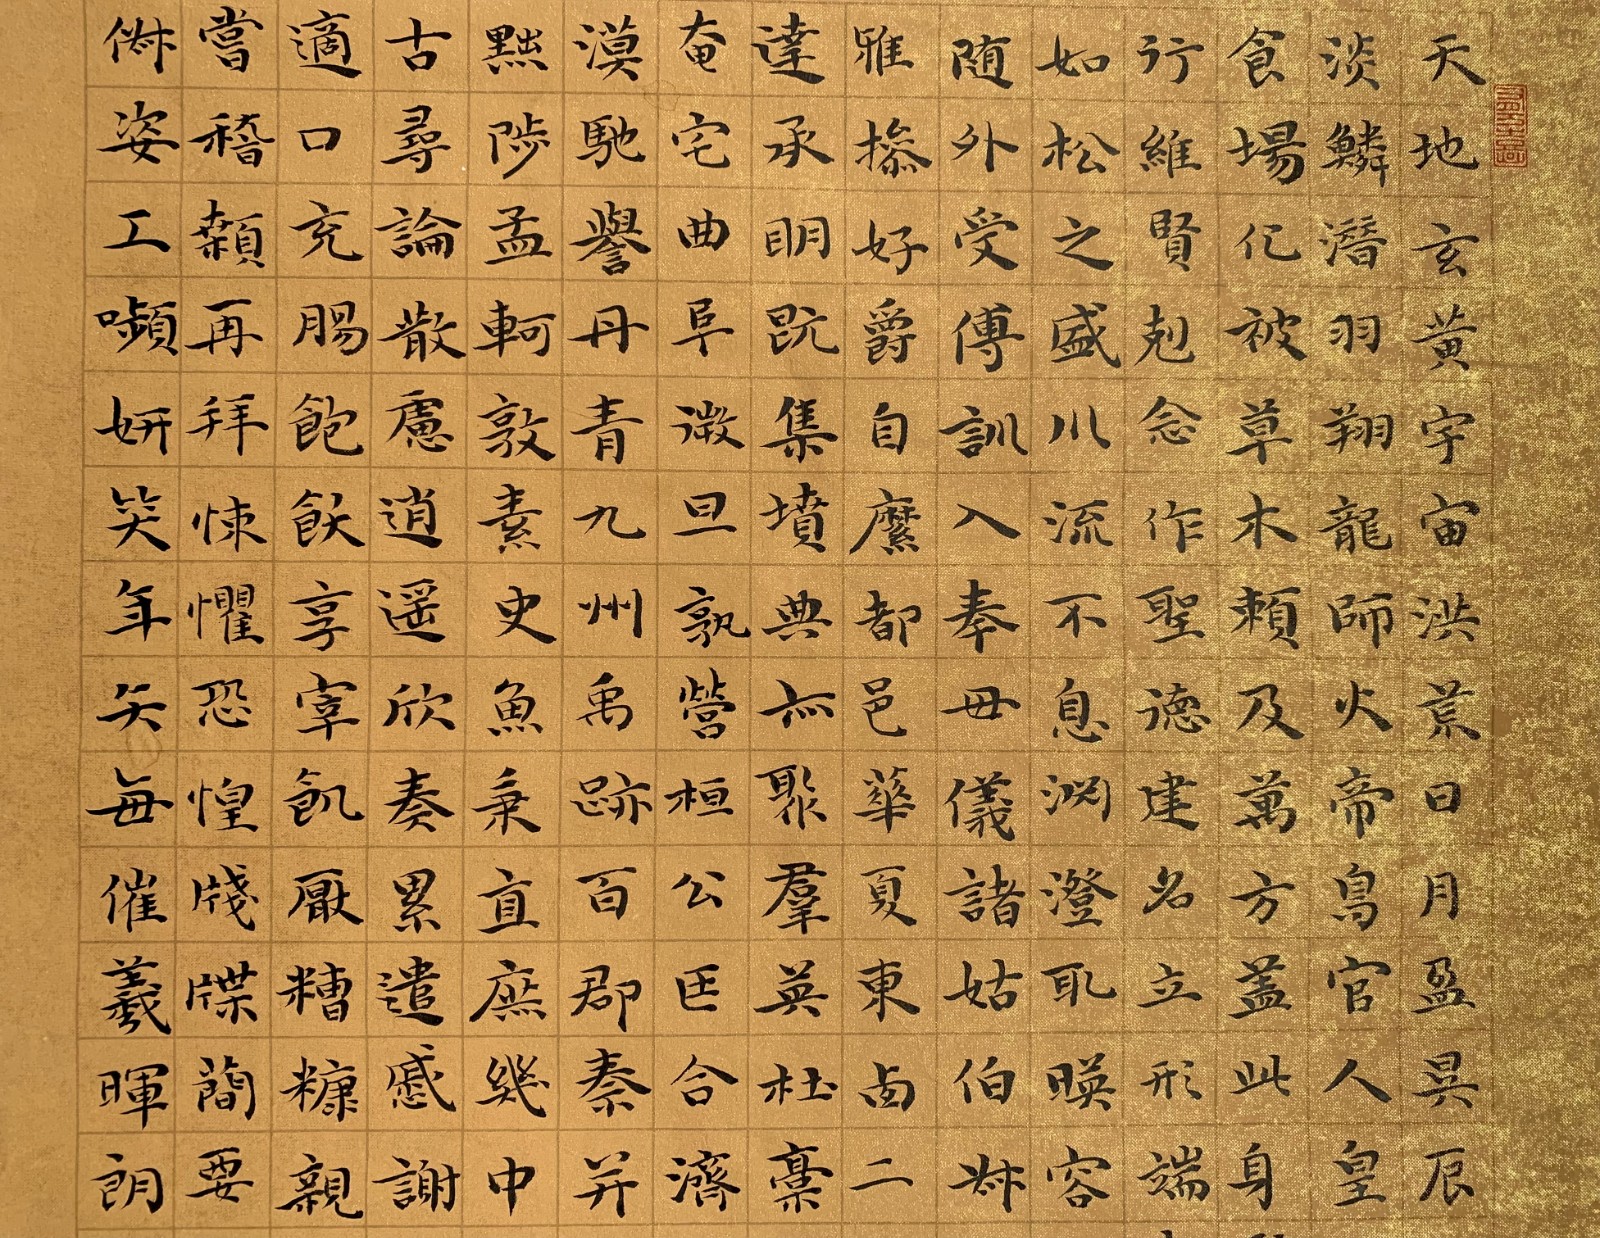 天地玄黃宇宙洪荒日月盈昃辰
淡鱗潛羽翔龍師火帝鳥官人皇
食場化被草木賴及萬方蓋此身
行維賢剋念作聖德建名立形端
如松之盛川流不息渊澄取暎容
随外受傅訓入奉母儀諸姑伯叔
雅操好爵自縻都邑華夏東西二
達承明既集墳典亦聚羣英杜稾
奄宅曲阜微旦孰營桓公匡合濟
漠馳譽丹青九州禹跡百郡秦并
黜陟孟軻敦素史魚秉直庶幾中
古尋論散慮逍遥欣奏累遣慼謝
適口充腸飽飫享宰飢厭糟糠親
嘗稽顙再拜悚懼恐惶牋牒簡要
俶姿工嚬妍笑年矢每催羲暉朗